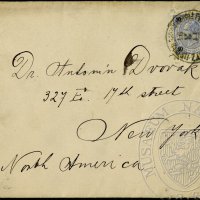 Dr. Antonín Dvorak
327 E. 17th street
New York
North America
MUSEUM